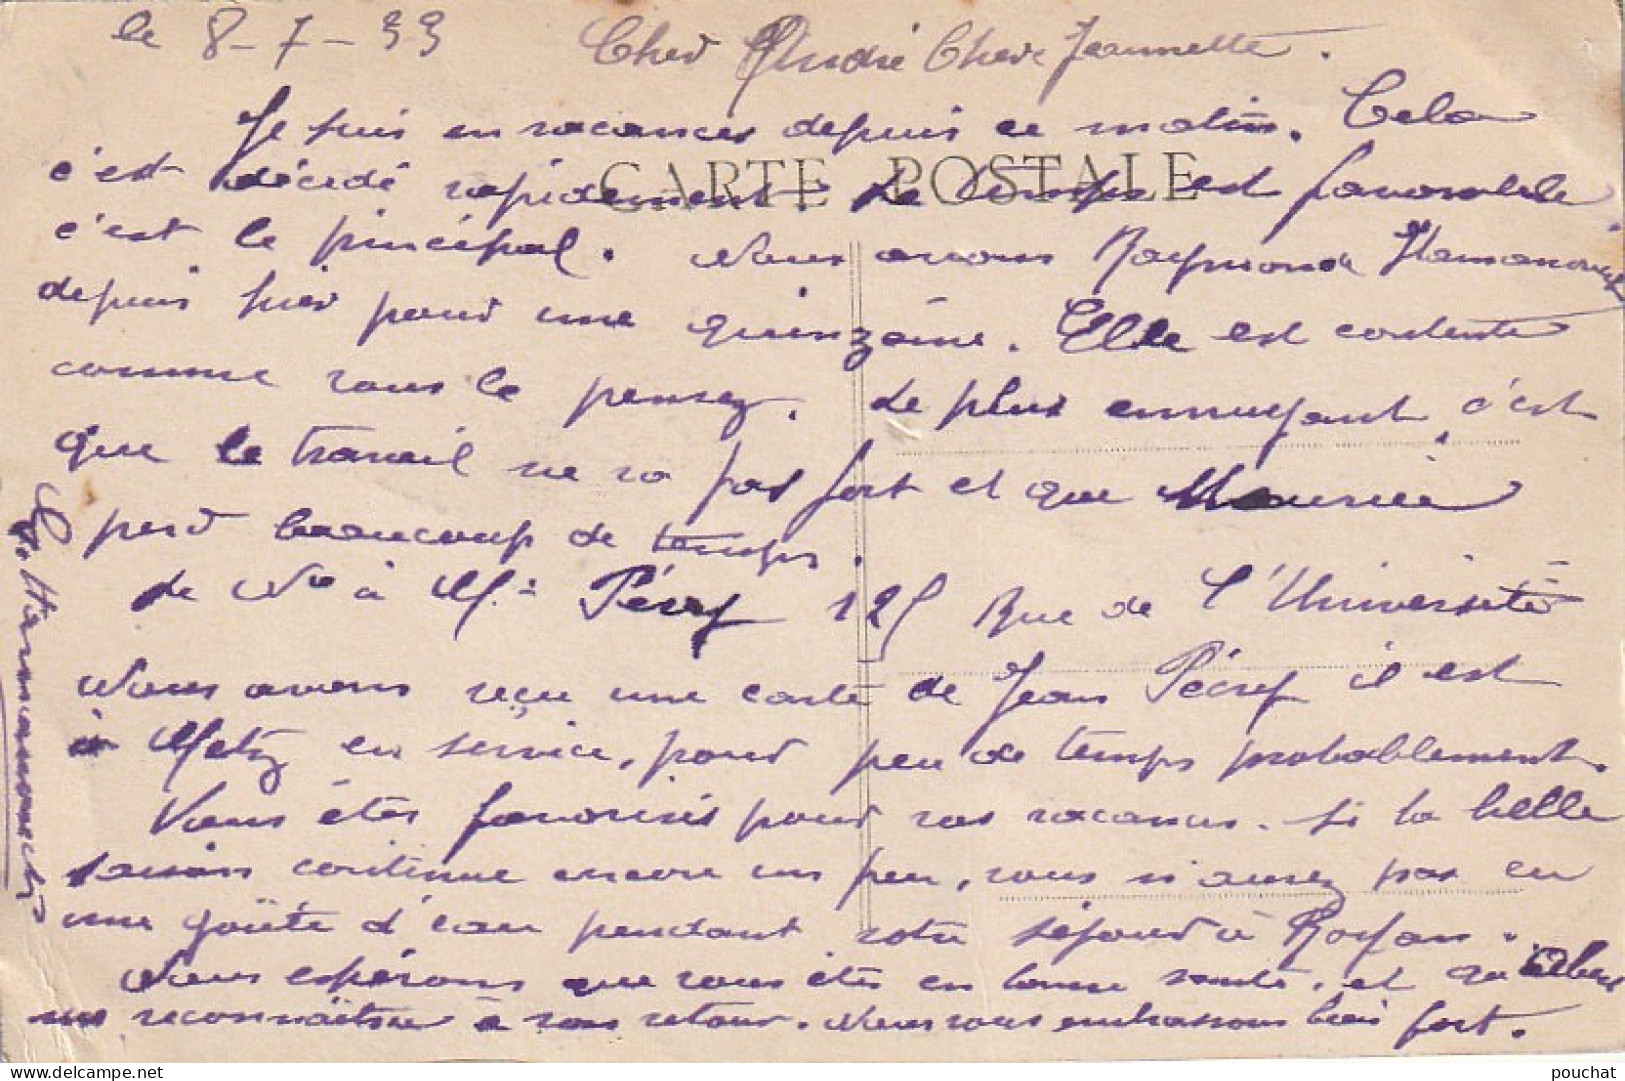 le 8-7-33 Cher André Chère Jeannette.
Je suis en vacances depuis ce matin. Cela
CARTE POSTALE
c'est décidé rapidement. Le temps est favorable
c'est le principal. Nous avons Raymonde
depuis hier pour une quinzaine. Elle est contente
comme vous le pensez. Le plus ennuyant c'est
que le travail ne va pas fort et que Maurice
perd beaucoup de temps.
de Nlle à Mr Pécref 125 Rue de l'Université
Nous avons reçu une carte de Jean Pécref il est
à Metz en service, pour peu de temps probablement.
Vous êtes favorisés pour vos vacances. Si la belle
saison continue encore un peu, vous n'aurez pas eu
une goûte d'eau pendant votre séjour à Royan.
Nous espérons que vous êtes en bonne santé, et qu'Albert
me reconnaîtra à son retour. Nous vous embrassons bien fort.
pouchat